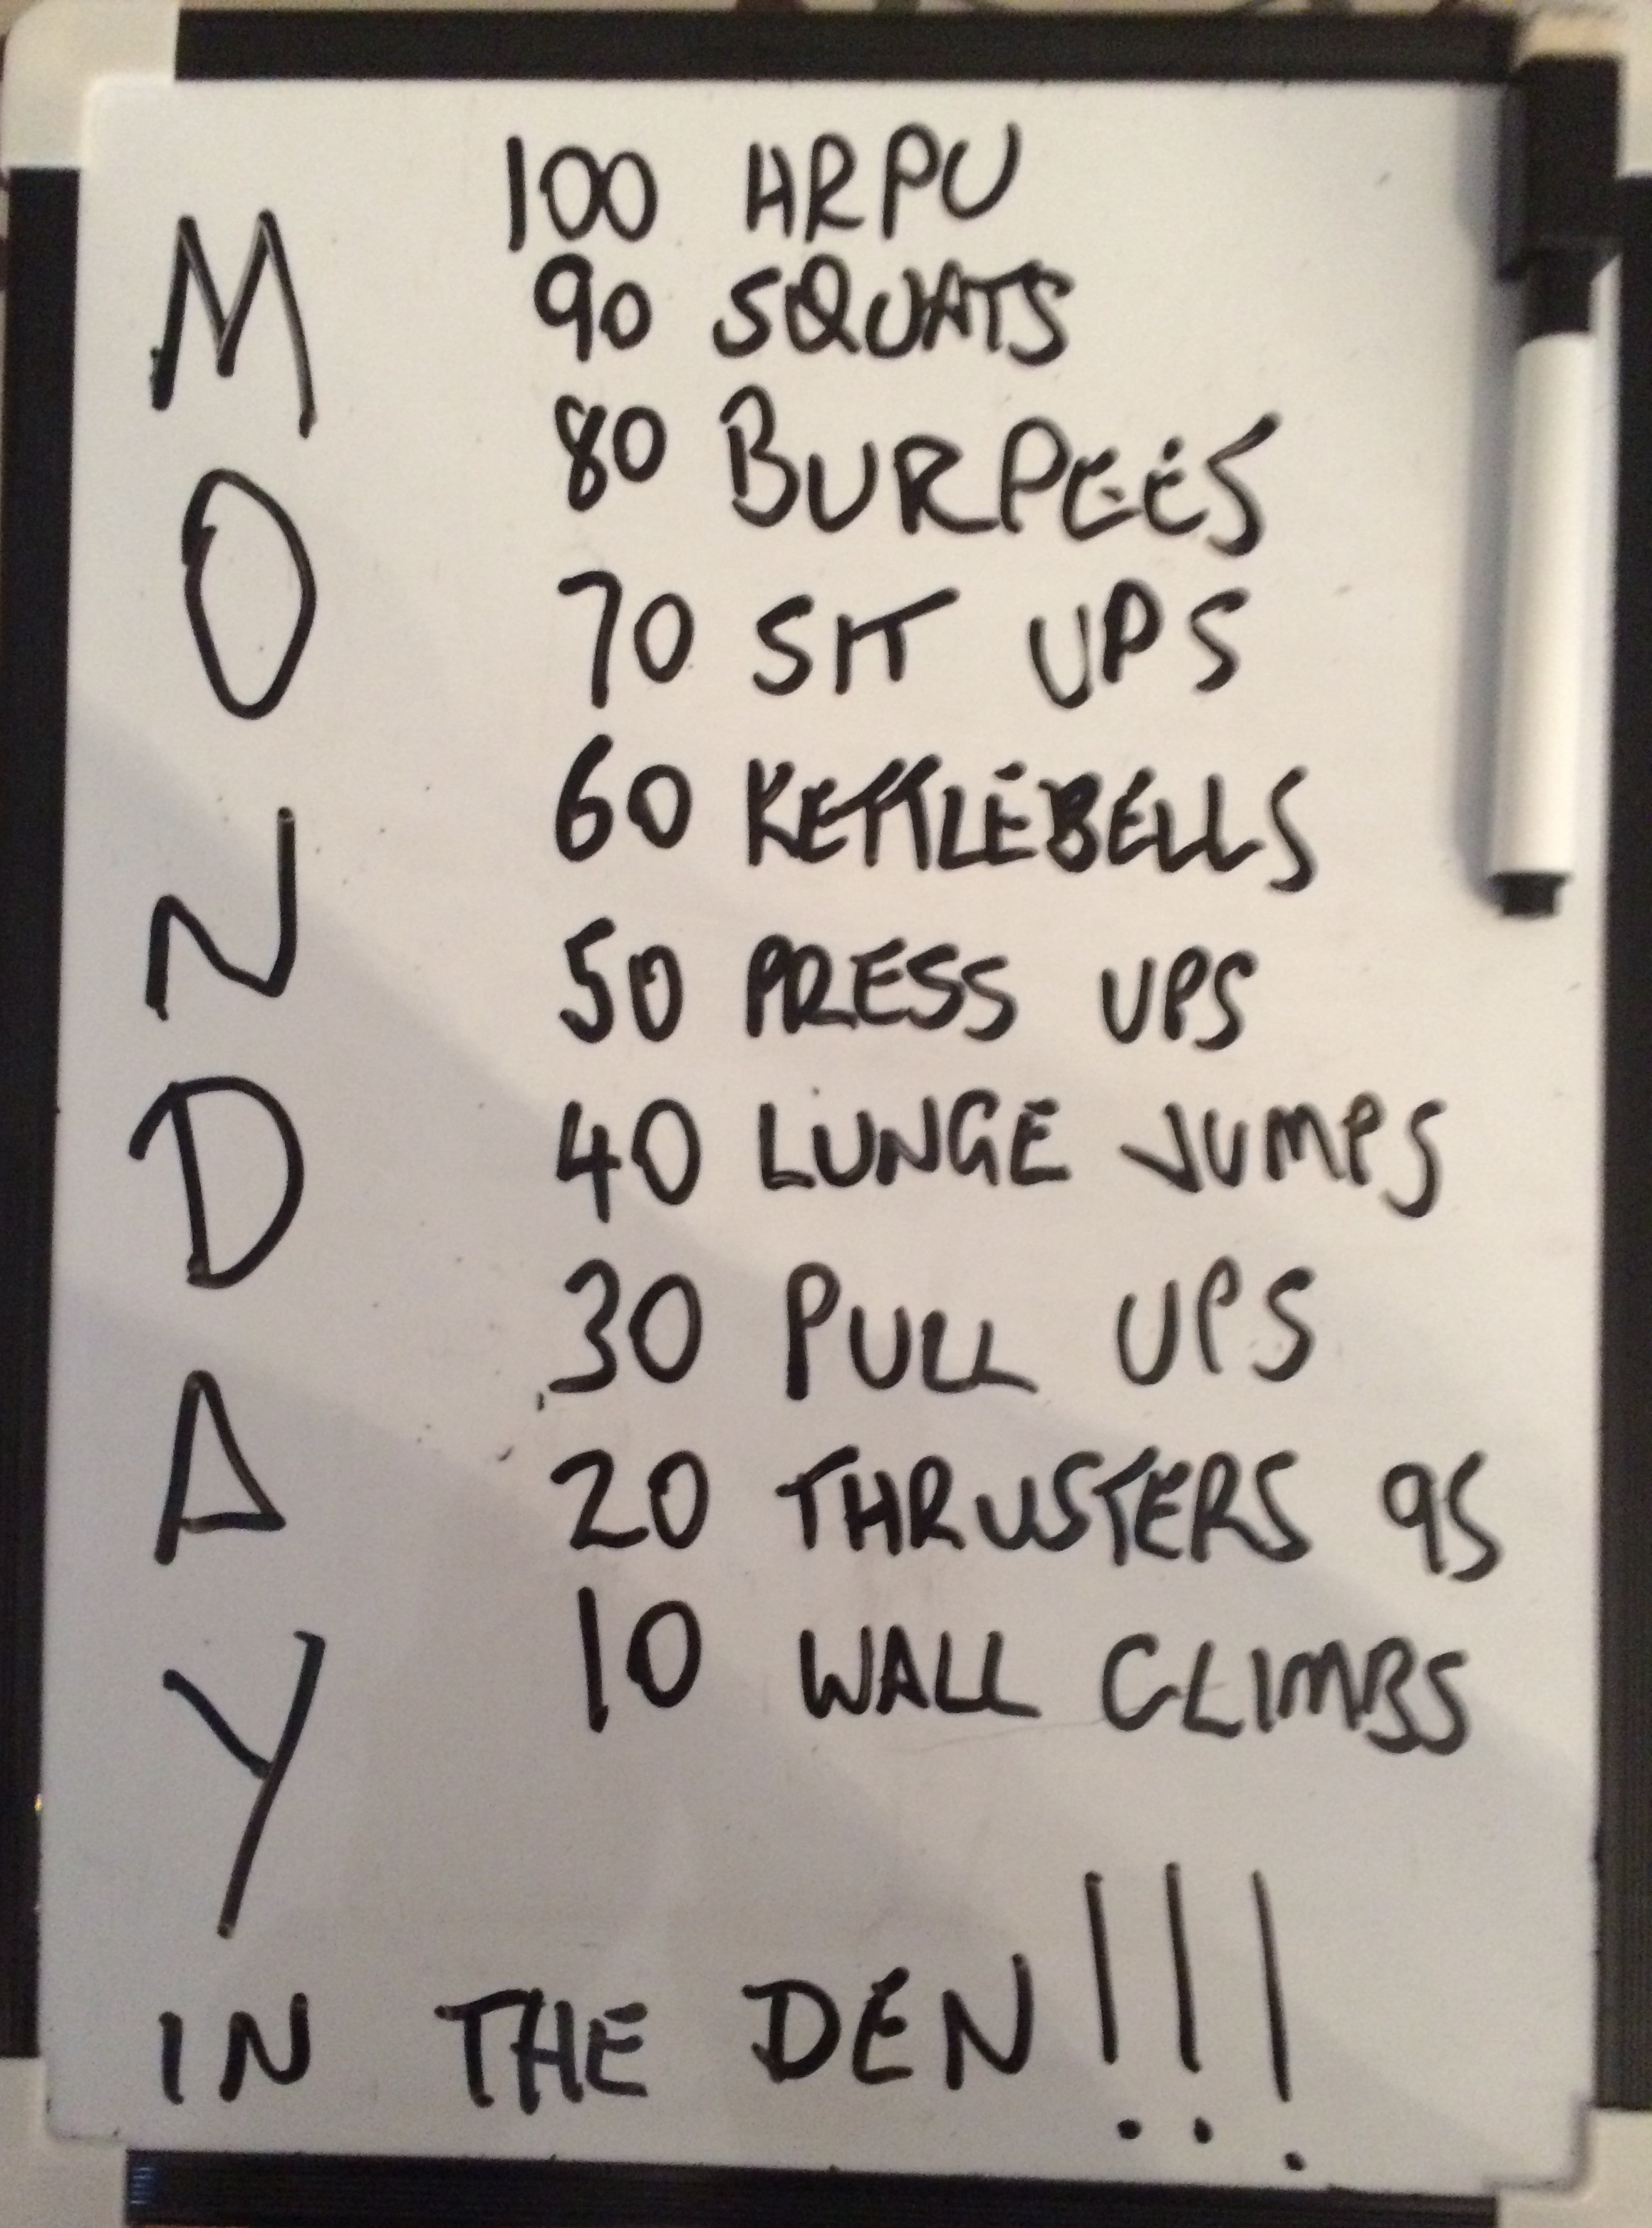 MONDAY
100 HRPU
90 SQUATS
80 BURPEES
70 SIT UPS
60 KETTLEBELLS
50 PRESS UPS
40 LUNGE JUMPS
30 PULL UPS
20 THRUSTERS 95
10 WALL CLIMBS
IN THE DEN!!!